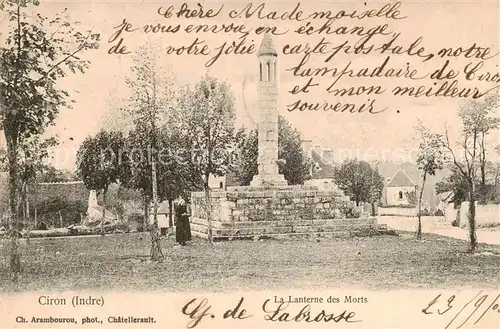 Chère Mademoiselle
Je vous envoie, en échange,
de votre jolie carte postale, notre
lampadaire de Ciron
et mon meilleur
souvenir.
Ciron (Indre)
La Lanterne des Morts
Ch. Arambourou, phot., Châtellerault.
G. de Labrosse
23/9/0